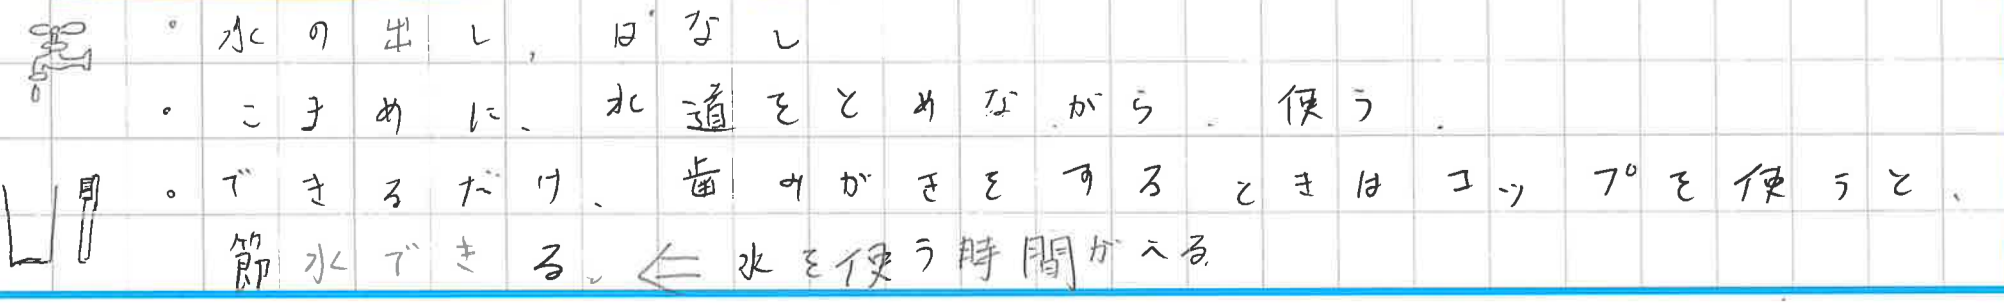 ・水の出し、ぱなし
・こまめに、水道をとめながら、使う.
・できるだけ、歯みがきをするときはコップを使うと、
節水できる。⇐水を使う時間がへる